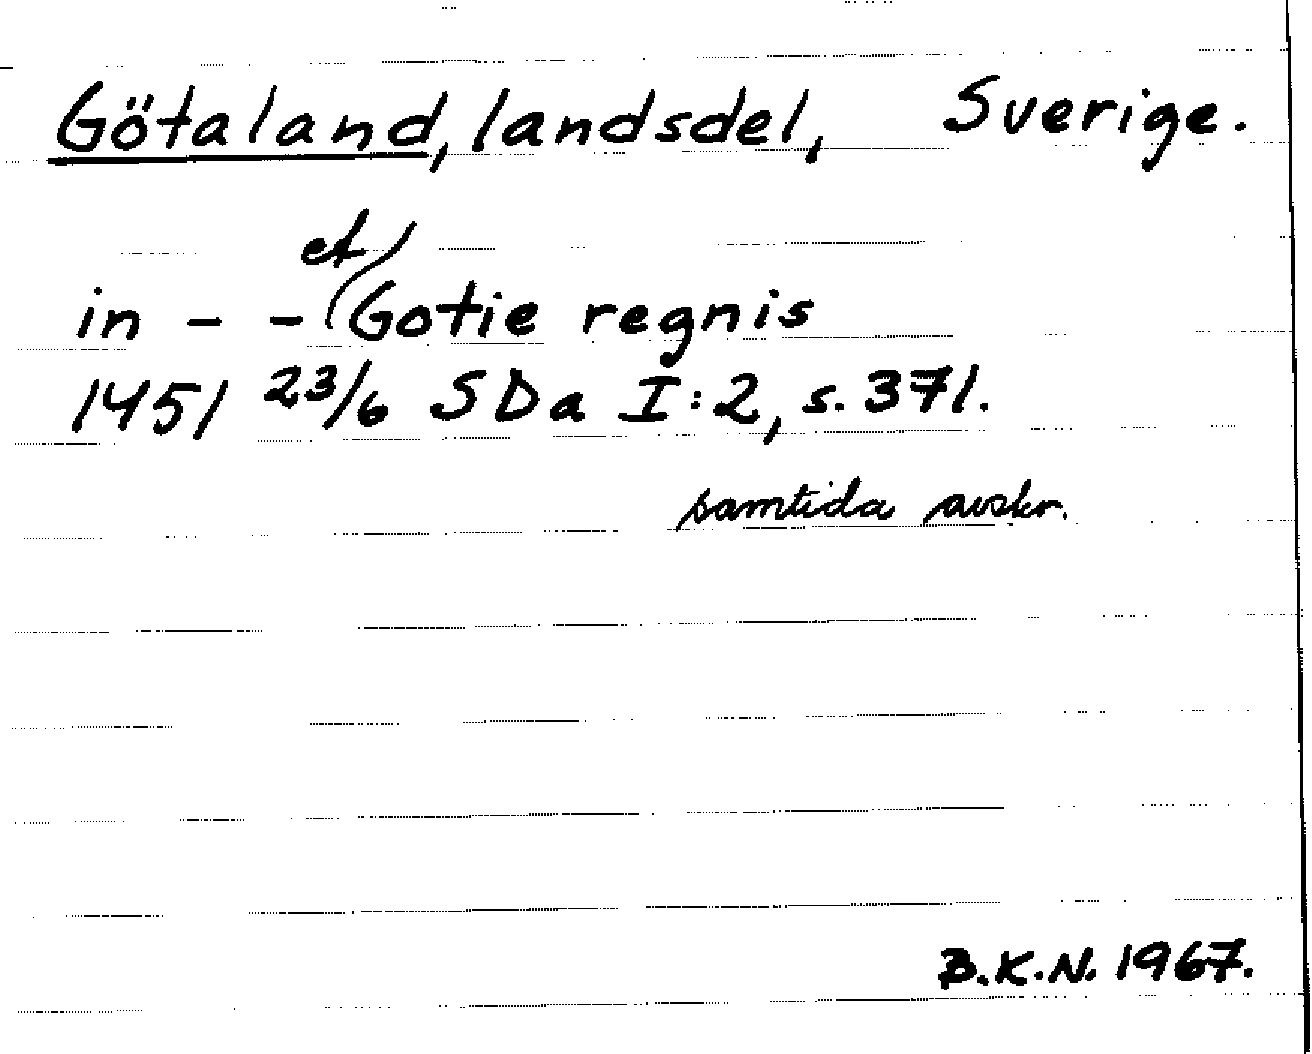 Götaland, landsdel, Sverige.
et
in - - Gotie regnis
1451 23/6 SDa I:2, s. 371.
samtida avskr.
B.K.N. 1967.